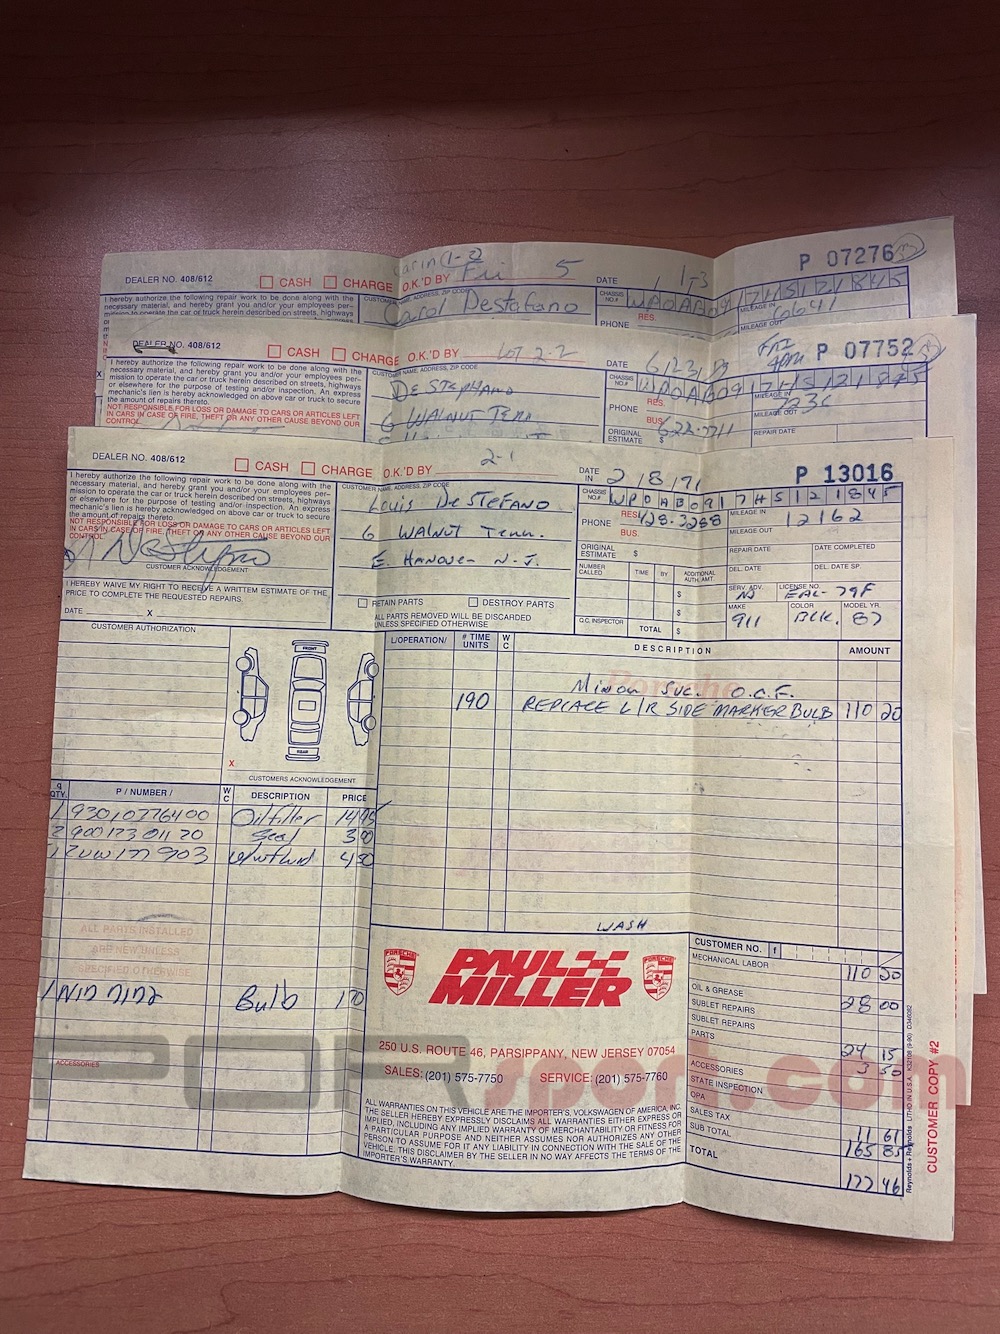 P 07276
DEALER NO. 408/612
CASH
CHARGE
O.K.'D BY
Fri 5
DATE
1-3
I hereby authorize the following repair work to be done along with the
necessary material, and hereby grant you and/or your employees per-
mission to operate the car or truck herein described on streets, highways
NAME, ADDRESS, ZIP CODE
Carol Destefano
CHASSIS NO.
WPOAB091745121845
RES.
PHONE
MILEAGE IN
6641
MILEAGE OUT
FRI
4PM
P 07752
DEALER NO. 408/612
CASH
CHARGE
O.K.'D BY
LOT 2-2
DATE
I hereby authorize the following repair work to be done along with the
necessary material, and hereby grant you and/or your employees per-
mission to operate the car or truck herein described on streets, highways
or elsewhere for the purpose of testing and/or inspection. An express
mechanic's lien is hereby acknowledged on above car or truck to secure
the amount of repairs thereto.
NOT RESPONSIBLE FOR LOSS OR DAMAGE TO CARS OR ARTICLES LEFT
IN CARS IN CASE OF FIRE, THEFT OR ANY OTHER CAUSE BEYOND OUR
CONTROL.
CUSTOMER NAME, ADDRESS, ZIP CODE
DE STEPHANO
6 WALNUT TERR
CHASSIS NO.
WPOAB091745121845
RES.
PHONE
BUS.
ORIGINAL ESTIMATE $
MILEAGE IN
MILEAGE OUT
REPAIR DATE
P 13016
DEALER NO. 408/612
CASH
CHARGE
O.K.'D BY
2-1
DATE IN
2/8/91
I hereby authorize the following repair work to be done along with the
necessary material, and hereby grant you and/or your employees per-
mission to operate the car or truck herein described on streets, highways
or elsewhere for the purpose of testing and/or inspection. An express
mechanic's lien is hereby acknowledged on above car or truck to secure
the amount of repairs thereto.
NOT RESPONSIBLE FOR LOSS OR DAMAGE TO CARS OR ARTICLES LEFT
IN CARS IN CASE OF FIRE, THEFT OR ANY OTHER CAUSE BEYOND OUR
CONTROL
CUSTOMER ACKNOWLEDGEMENT
I HEREBY WAIVE MY RIGHT TO RECEIVE A WRITTEM ESTIMATE OF THE
PRICE TO COMPLETE THE REQUESTED REPAIRS.
DATE X
CUSTOMER NAME, ADDRESS, ZIP CODE
Louis DeSTEFANO
6 WALNUT Terr.
E. Hanover N.J.
RETAIN PARTS
DESTROY PARTS
ALL PARTS REMOVED WILL BE DISCARDED
UNLESS SPECIFIED OTHERWISE
CHASSIS NO.
WPOAB091745121845
PHONE
RES.
428-3288
BUS.
ORIGINAL ESTIMATE $
NUMBER CALLED
TIME
BY
ADDITIONAL AUTH. AMT.
$
$
Q.C. INSPECTOR
TOTAL $
MILEAGE IN
12162
MILEAGE OUT
REPAIR DATE
DATE COMPLETED
DEL. DATE
DEL. DATE SP.
SERV. ADV.
NJ
LICENSE NO.
EAL-79F
MAKE
911
COLOR
BLK.
MODEL YR.
87
CUSTOMER AUTHORIZATION
FRONT
REAR
X
CUSTOMERS ACKNOWLEDGEMENT
L/OPERATION/
# TIME UNITS
W C
DESCRIPTION
AMOUNT
Minor Svc. O.C.F.
190 REPLACE L/R SIDE MARKER BULB 110 20
WASH
Q QTY.
P / NUMBER /
W C
DESCRIPTION
PRICE
1 93010776400 Oilfilter 14 95
2 90017301120 Seal 3 00
1 ZVW177903 4 50
ALL PARTS INSTALLED
ARE NEW UNLESS
SPECIFIED OTHERWISE
Bulb 1 70
ACCESSORIES
PORSCHE
PAUL MILLER
PORSCHE
250 U.S. ROUTE 46, PARSIPPANY, NEW JERSEY 07054
SALES: (201) 575-7750
SERVICE: (201) 575-7760
ALL WARRANTIES ON THIS VEHICLE ARE THE IMPORTER'S, VOLKSWAGEN OF AMERICA, INC.
THE SELLER HEREBY EXPRESSLY DISCLAIMS ALL WARRANTIES EITHER EXPRESS OR
IMPLIED, INCLUDING ANY IMPLIED WARRANTY OF MERCHANTABILITY OR FITNESS FOR
A PARTICULAR PURPOSE AND NEITHER ASSUMES NOR AUTHORIZES ANY OTHER
PERSON TO ASSUME FOR IT ANY LIABILITY IN CONNECTION WITH THE SALE OF THE
VEHICLE. THIS DISCLAIMER BY THE SELLER IN NO WAY AFFECTS THE TERMS OF THE
IMPORTER'S WARRANTY.
CUSTOMER NO.
MECHANICAL LABOR
110 20
OIL & GREASE
SUBLET REPAIRS
28 00
SUBLET REPAIRS
PARTS
24 15
ACCESSORIES
3 50
STATE INSPECTION
OPA
SALES TAX
11 61
SUB TOTAL
165 85
TOTAL
177 46
Reynolds + Reynolds
CUSTOMER COPY #2
PORsport.com